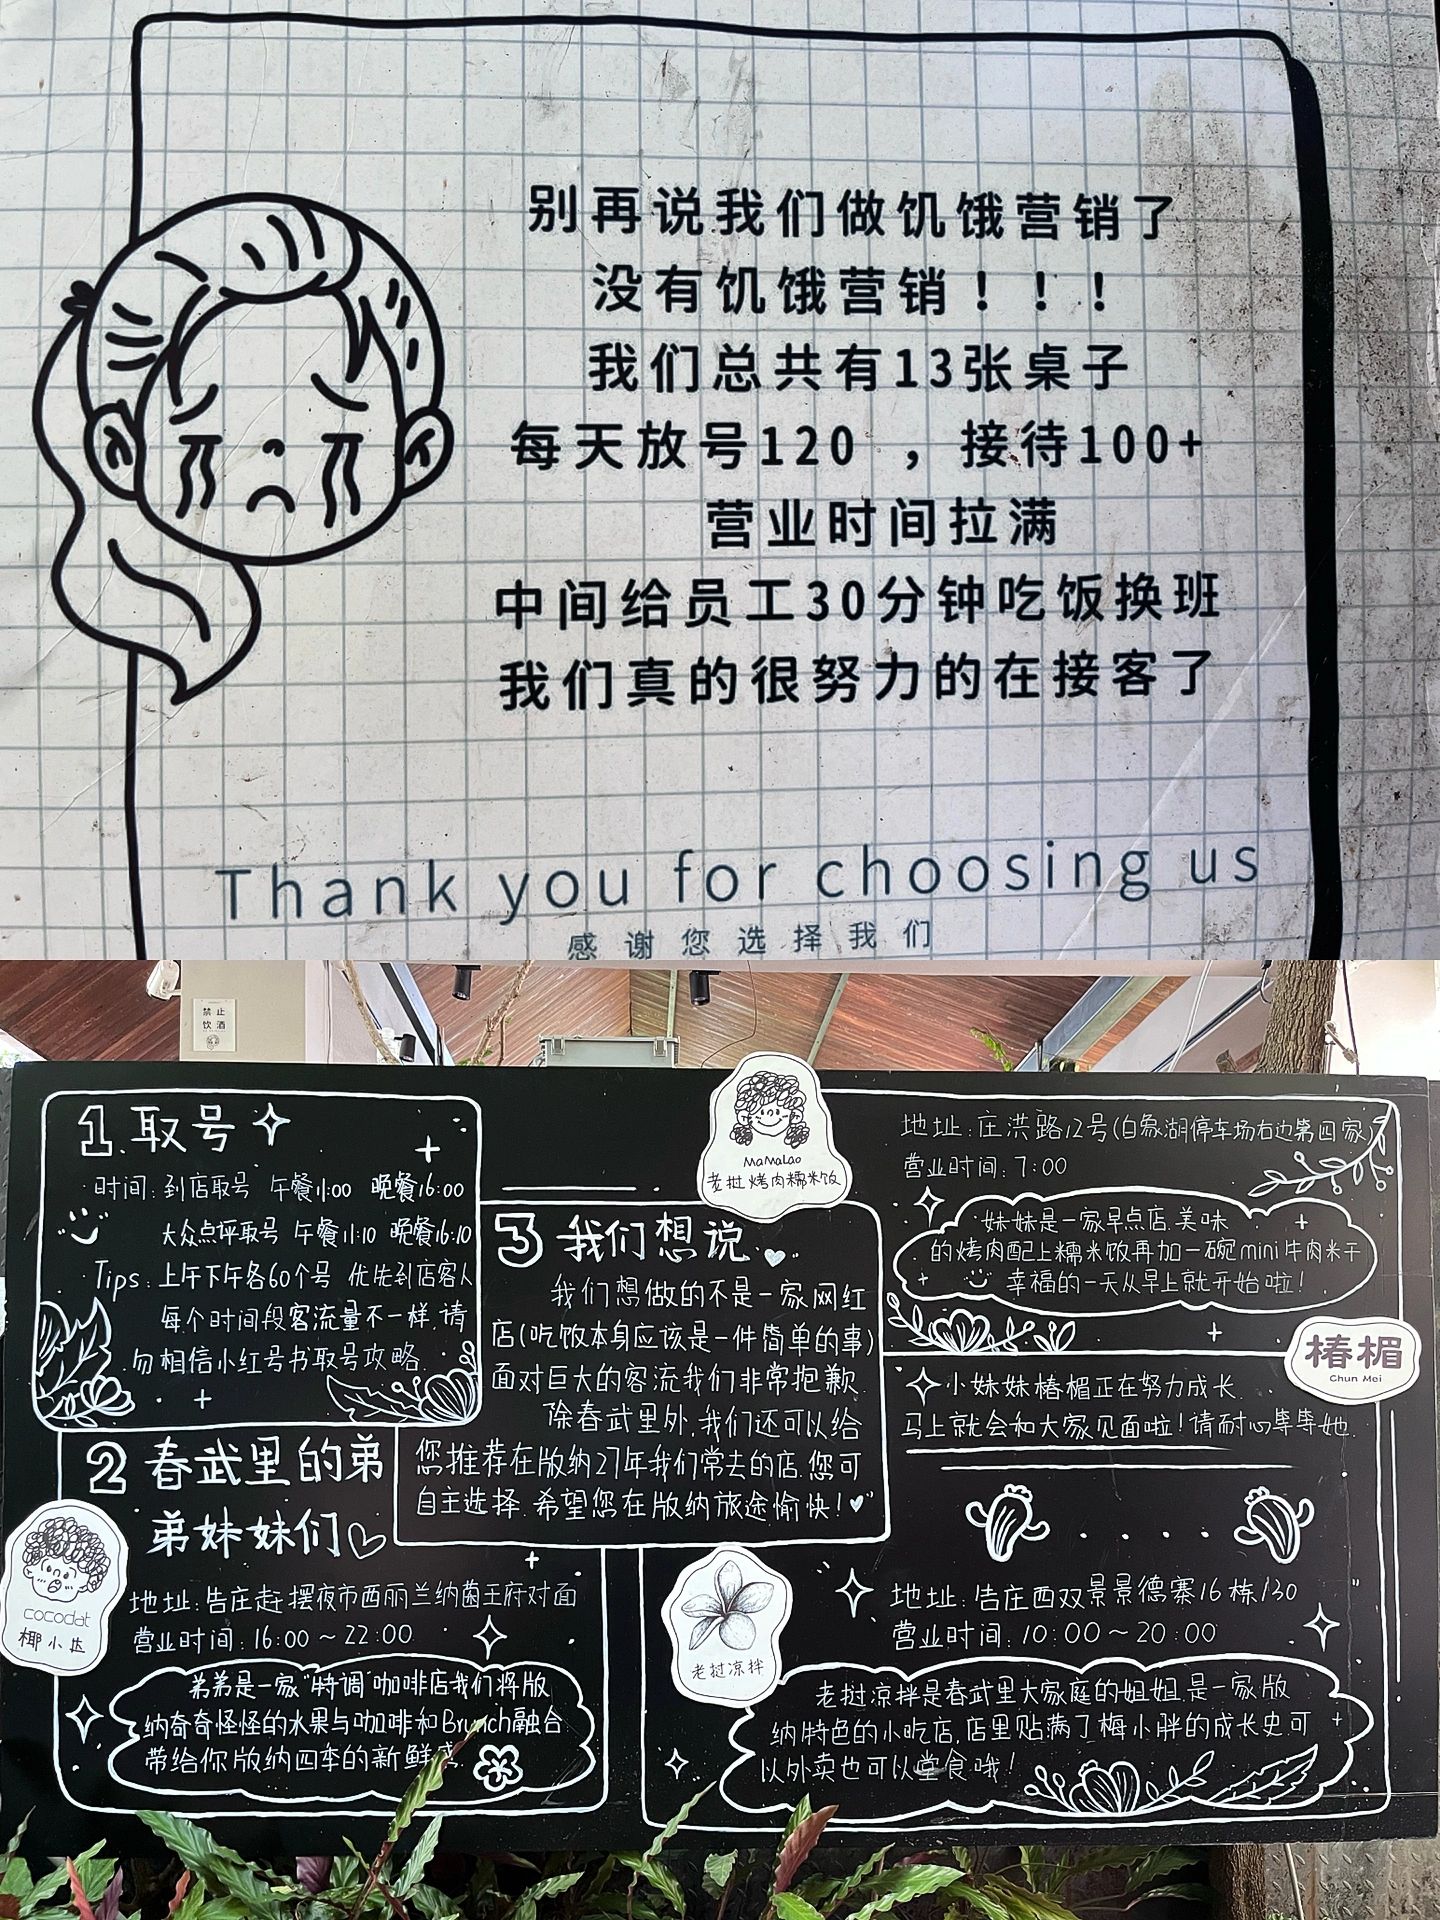 别再说我们做饥饿营销了
没有饥饿营销！！！
我们总共有13张桌子
每天放号120 ，接待100+
营业时间拉满
中间给员工30分钟吃饭换班
我们真的很努力的在接客了
Thank you for choosing us
感谢您选择我们
禁止
饮酒
1.取号
时间:到店取号 午餐11:00 晚餐16:00
大众点评取号 午餐11:10 晚餐16:10
Tips:上午下午各60个号 优先到店客人
每个时间段客流量不一样.请
勿相信小红号书取号攻略.
2 春武里的弟
弟妹妹们
cocodat
椰小达
地址:告庄赶摆夜市西丽兰纳菌王府对面
营业时间:16:00~22:00
弟弟是一家"特调"咖啡店我们将版
纳奇奇怪怪的水果与咖啡和Brunch融合
带给你版纳四季的新鲜感
MaMaLao
老挝烤肉糯米饭
3 我们想说
我们想做的不是一家网红
店(吃饭本身应该是一件简单的事)
面对巨大的客流我们非常抱歉.
除春武里外,我们还可以给
您推荐在版纳27年我们常去的店.您可
自主选择.希望您在版纳旅途愉快!
地址:庄洪路12号(白象湖停车场右边第四家)
营业时间:7:00
妹妹是一家早点店.美味
的烤肉配上糯米饭再加一碗mini牛肉米干
幸福的一天从早上就开始啦!
椿楣
Chun Mei
小妹妹椿楣正在努力成长.
马上就会和大家见面啦!请耐心等等她.
老挝凉拌
地址:告庄西双景景德寨16栋130
营业时间:10:00~20:00
老挝凉拌是春武里大家庭的姐姐.是一家版
纳特色的小吃店.店里贴满了梅小胖的成长史可
以外卖也可以堂食哦!